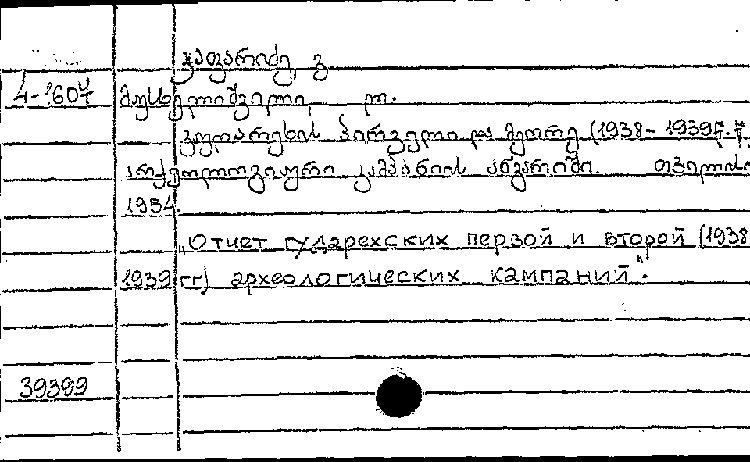 ჯაფარიძე ვ.
4-1607 მუსხელიშვილი ლ.
გუდარეხის პირველი და მეორე (1938-1939წ.წ.
არქეოლოგიური კამპანიის ანგარიში. თბილისი
1954.
"Отчет гударехских первой и второй (1938
1939 гг) археологических кампаний".
39399